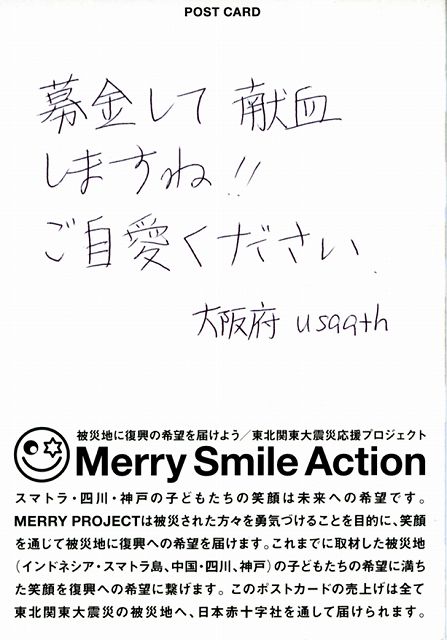 POST CARD
募金して 献血
しますね!!
ご自愛ください
大阪府 usaath
被災地に復興の希望を届けよう／東北関東大震災応援プロジェクト
Merry Smile Action
スマトラ・四川・神戸の子どもたちの笑顔は未来への希望です。
MERRY PROJECTは被災された方々を勇気づけることを目的に、笑顔
を通じて被災地に復興への希望を届けます。これまでに取材した被災地
(インドネシア・スマトラ島、中国・四川、神戸)の子どもたちの希望に満ち
た笑顔を復興への希望に繋げます。このポストカードの売上げは全て
東北関東大震災の被災地へ、日本赤十字社を通して届けられます。